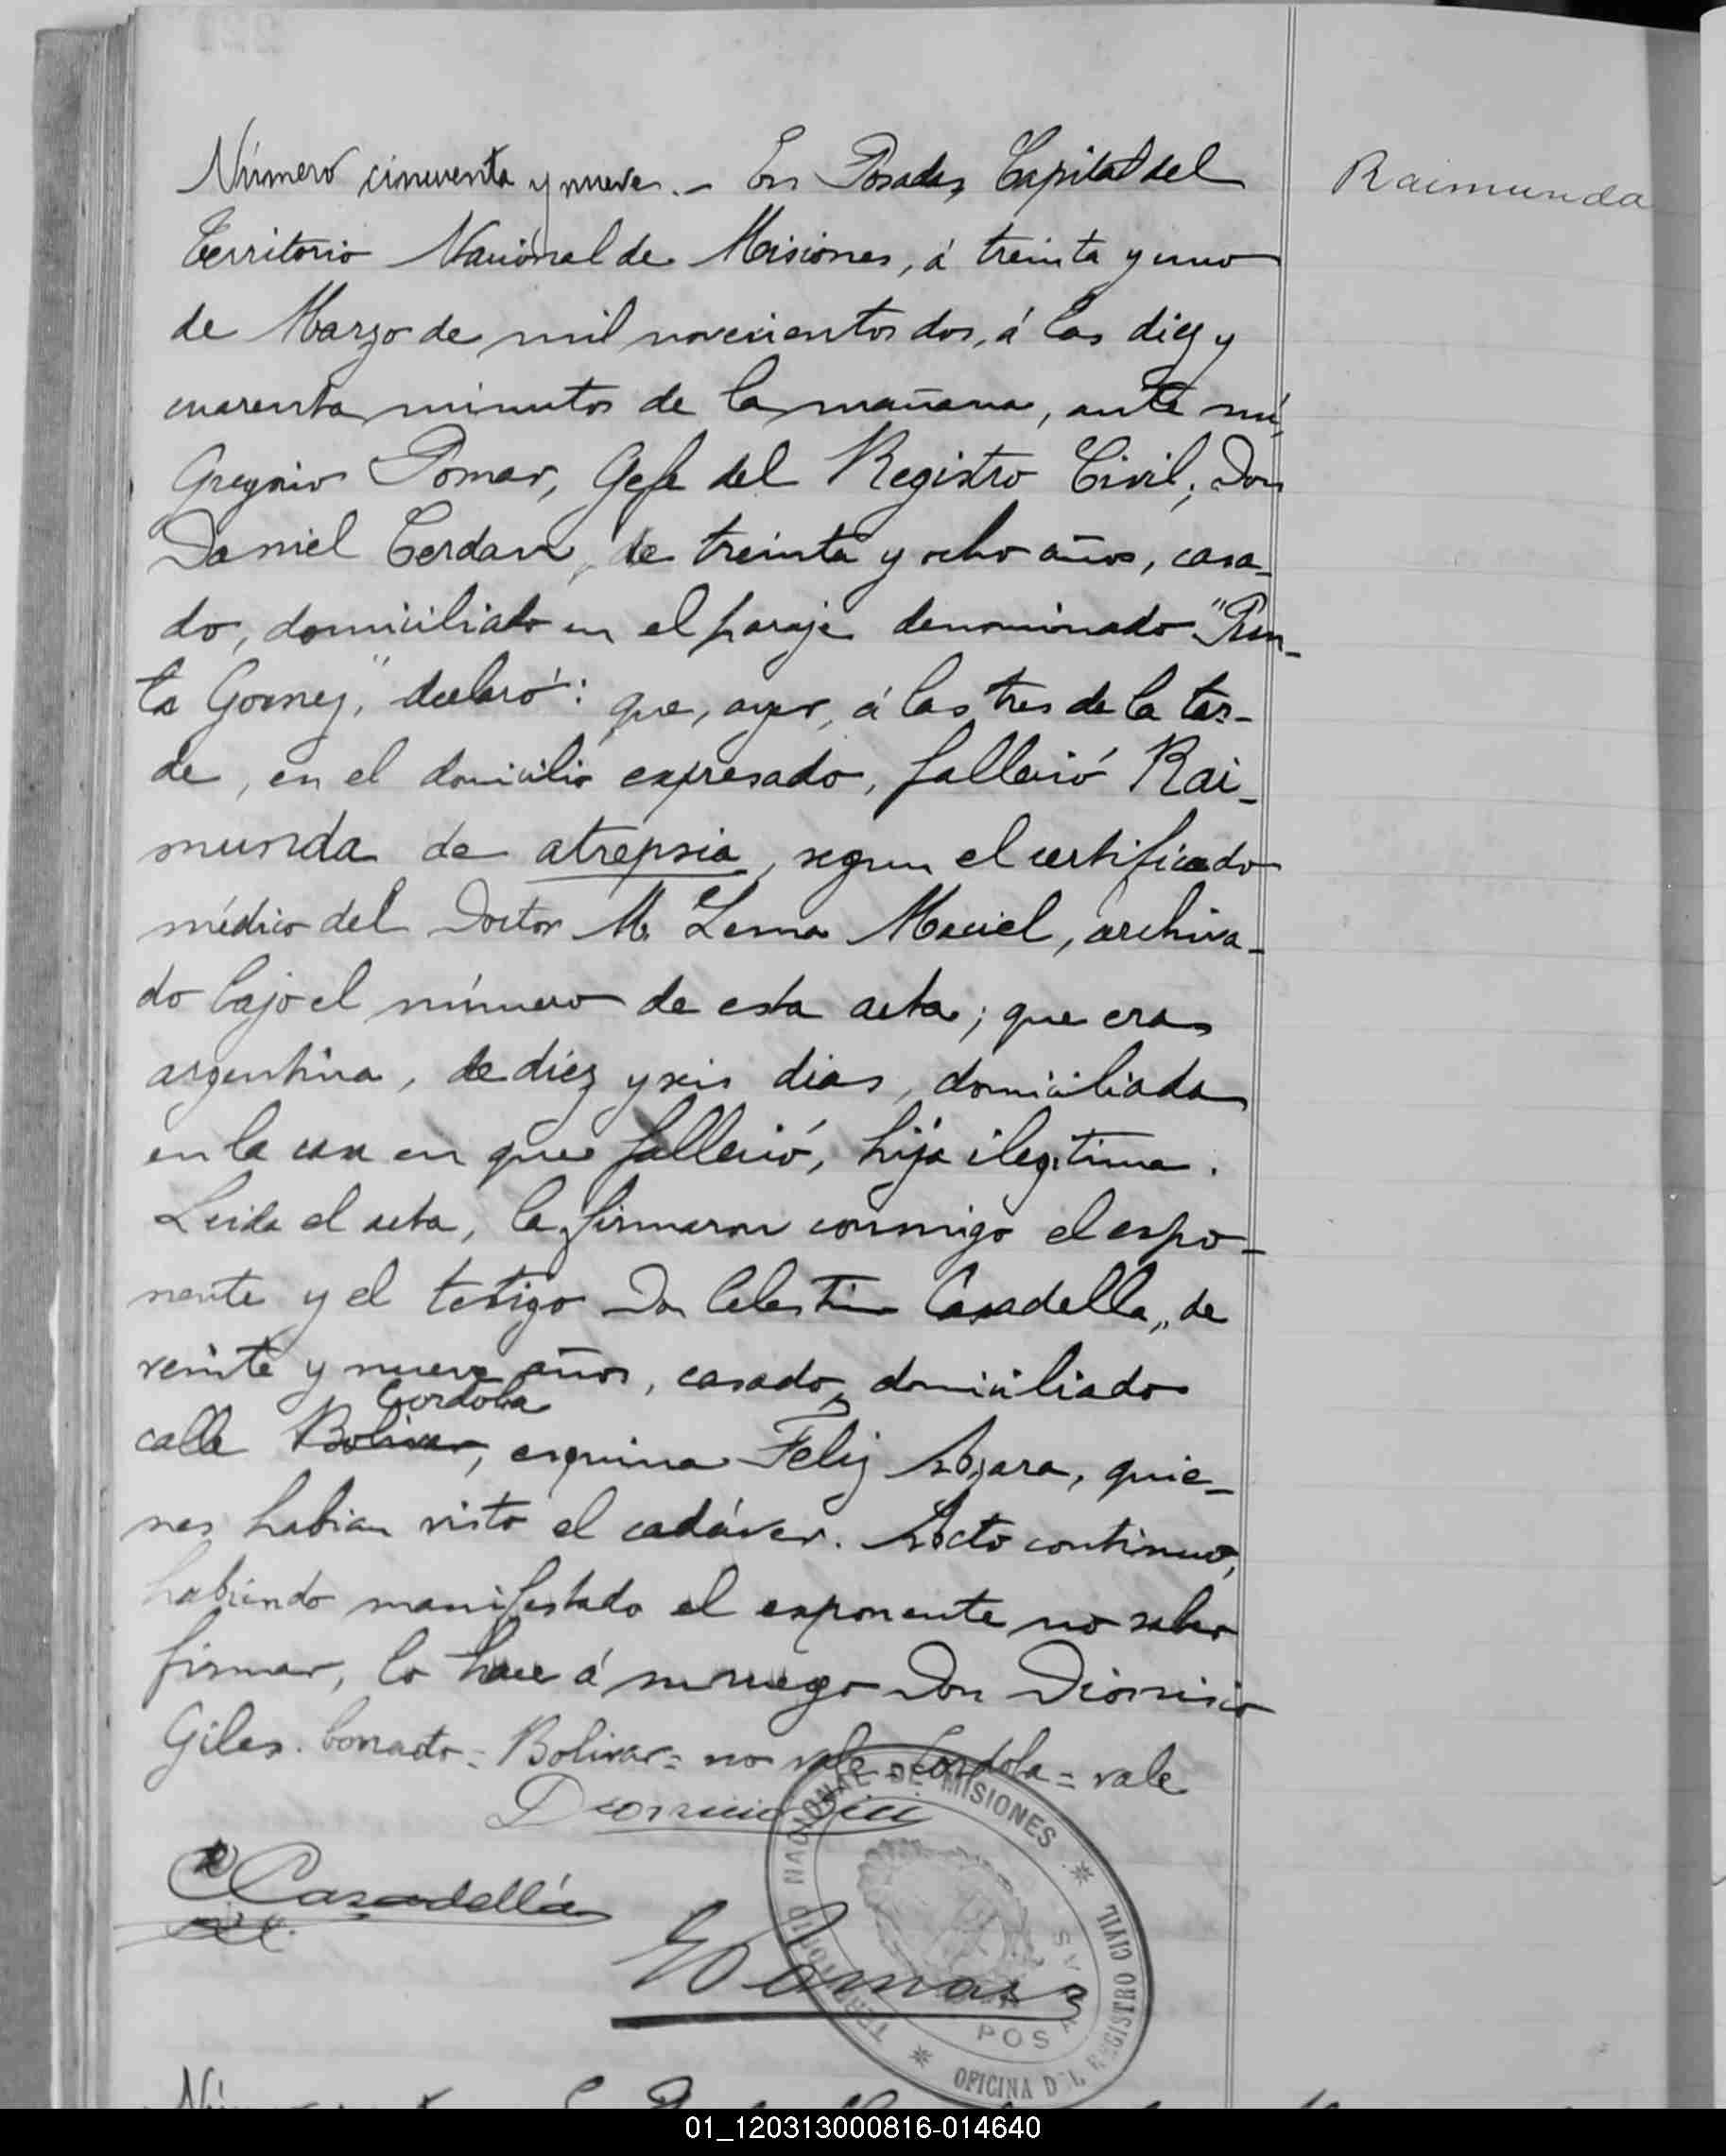 Número cincuenta y nueve.- En Posadas, Capital del
Raimunda
Territorio Nacional de Misiones, á treinta y uno
de Marzo de mil novecientos dos, á las diez y
cuarenta minutos de la mañana, ante mí,
Gregorio Pomar, Gefe del Registro Civil; Don
Daniel Cerdan, de treinta y ocho años, casa-
do, domiciliado en el paraje denominado "Pun-
ta Gomez," declaró: que, ayer, á las tres de la tar-
de, en el domicilio expresado, falleció Rai-
munda de atrepsia, segun el certificado
médico del Doctor M. Lema Maciel, archiva-
do bajo el número de esta acta; que era
argentina, de diez y seis dias, domiciliada
en la casa en que falleció, hija ilegitima.
Leida el acta, la firmaron conmigo el espo-
nente y el testigo Don Celestino Casadella, de
veinte y nueve años, casado, domiciliado
Cordoba
calle Bolivar, esquina Feliz Azara, quie-
nes habian visto el cadáver. Acto continuo,
habiendo manifestado el exponente no saber
firmar, lo hace á su ruego Don Dionisio
Giles. borrado = Bolivar = no vale = Cordoba = vale
Dionicio
C Casadellá
TERRITORIO NACIONAL DE MISIONES
OFICINA DEL REGISTRO CIVIL
POSADAS
01_120313000816-014640